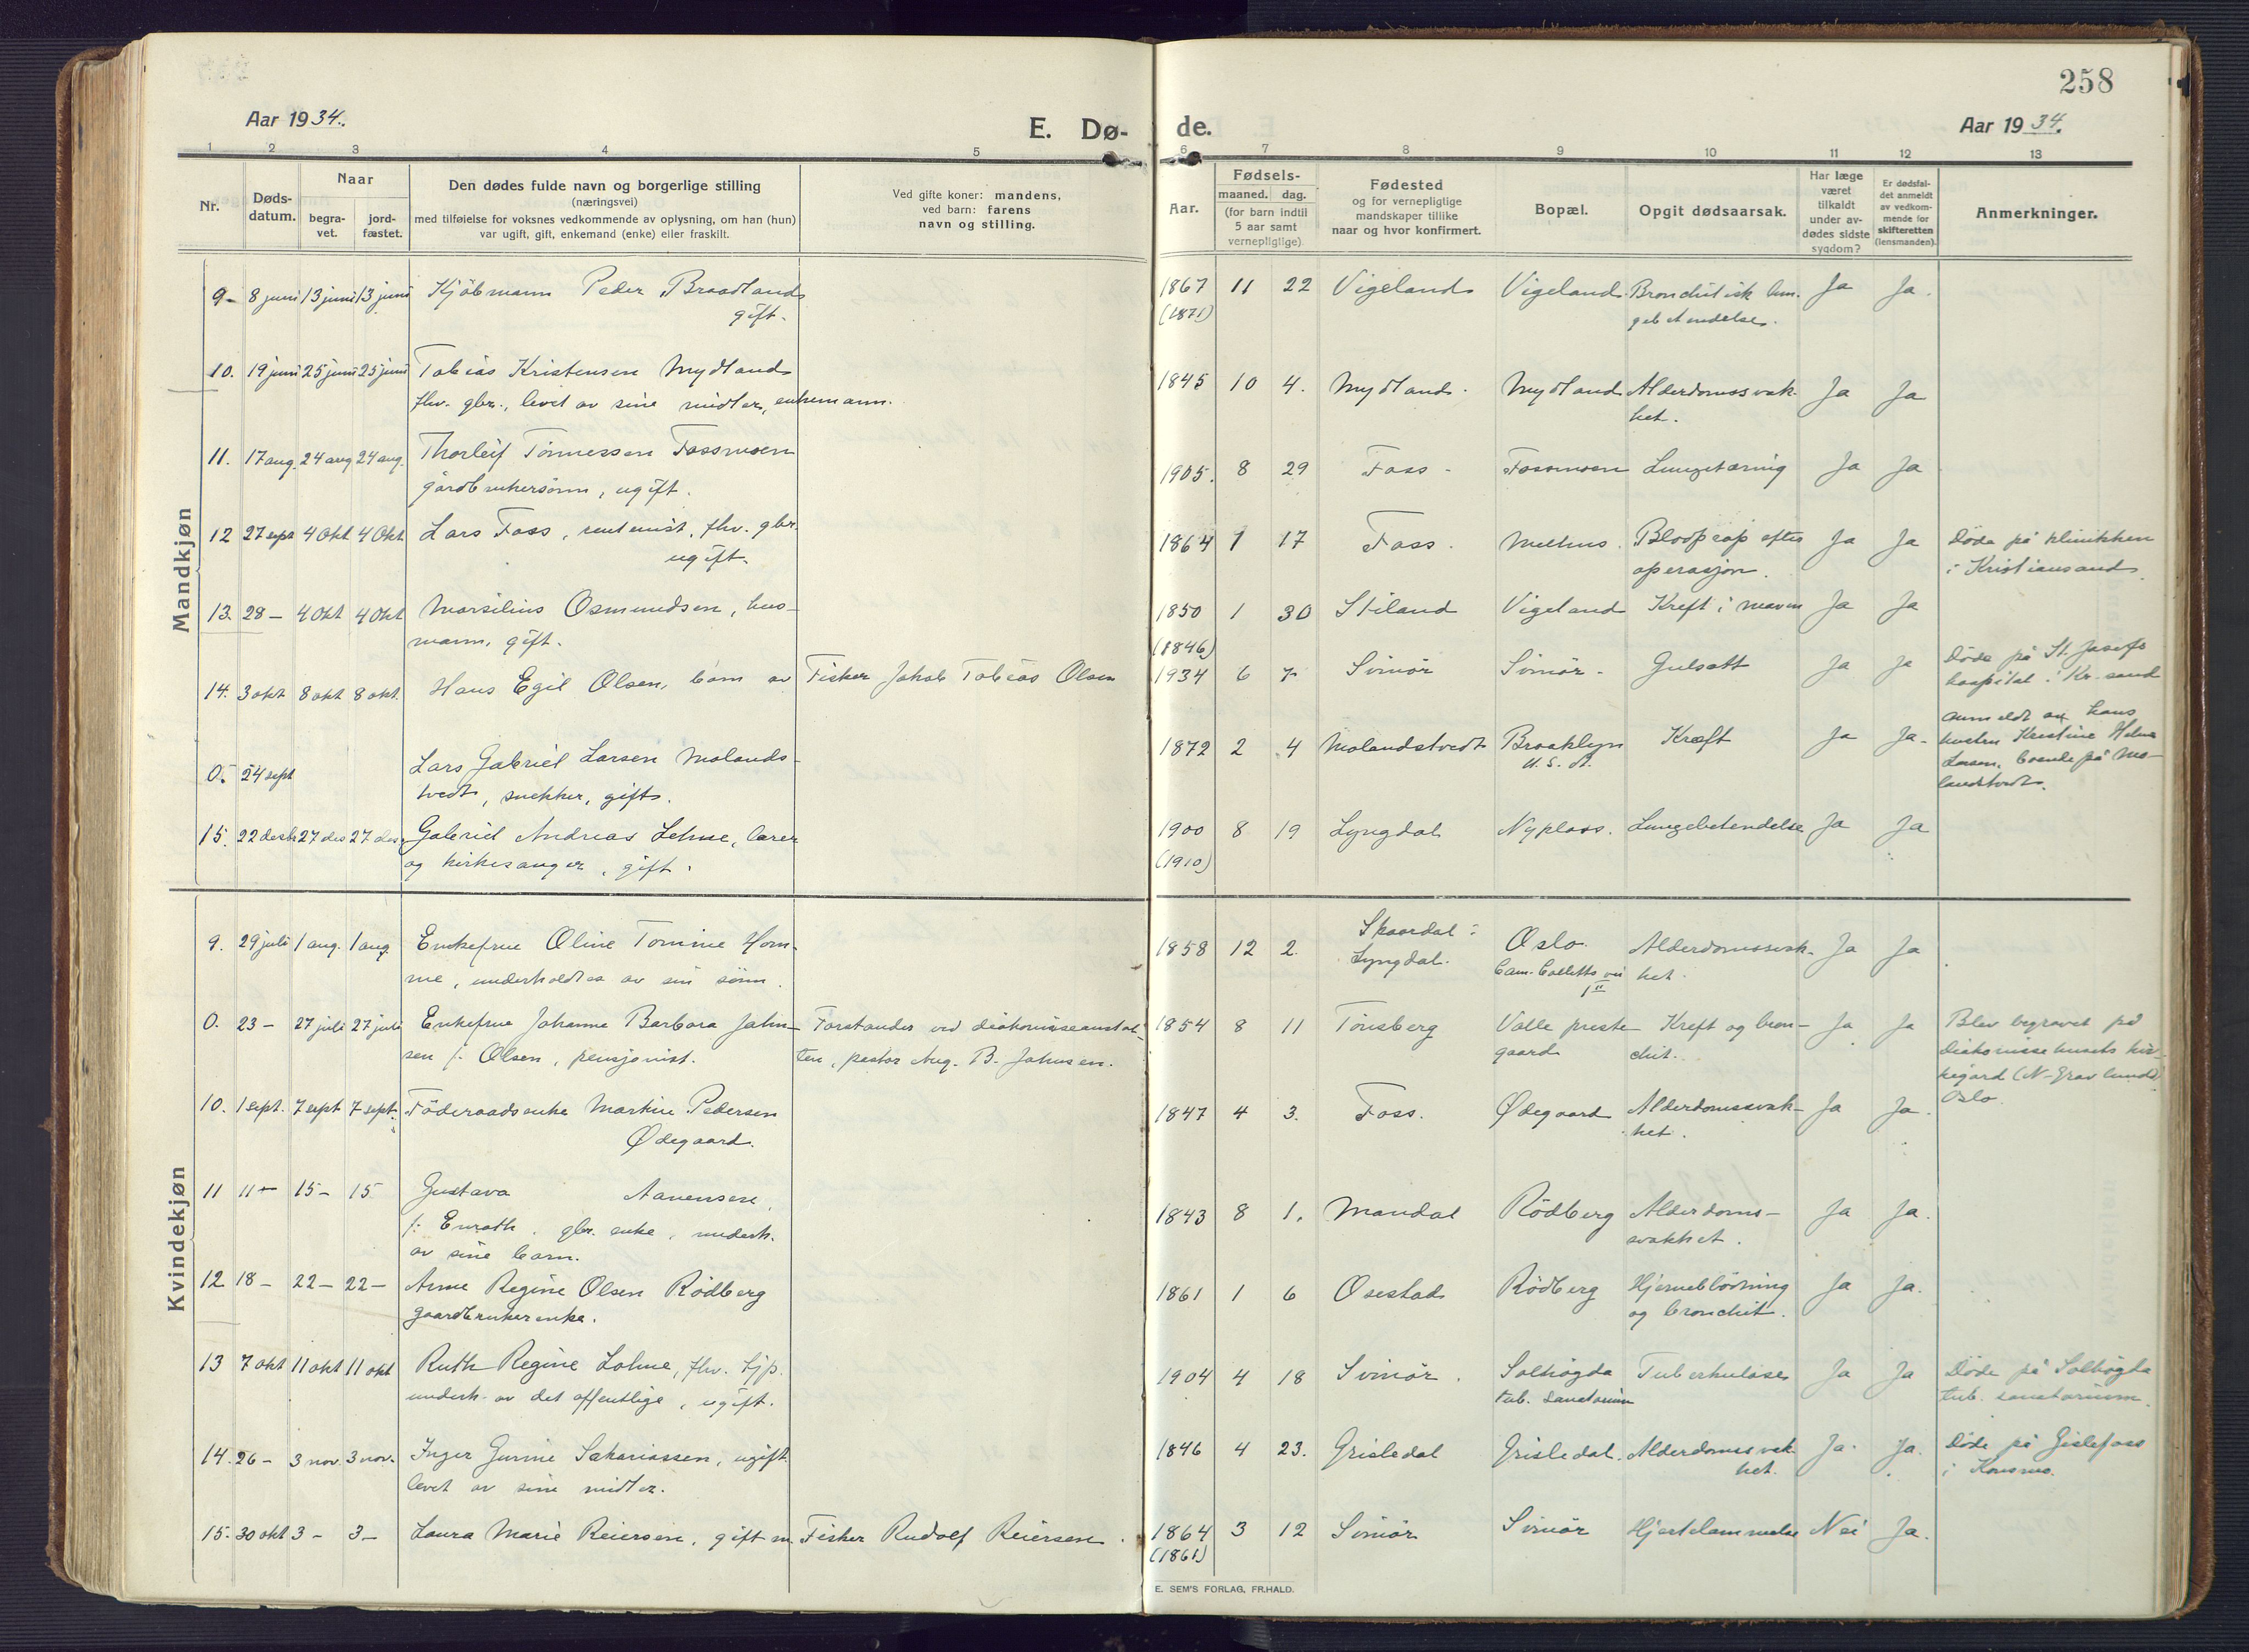 258
Aar 1934.
E. Dø- de.
Aar 1934.
1 2 3 4 5 6 7 8 9 10 11 12 13
Nr.
Døds-
datum.
Naar
begra-
vet.
jord-
fæstet.
Den dødes fulde navn og borgerlige stilling
(næringsvei)
med tilføielse for voksnes vedkommende av oplysning, om han (hun)
var ugift, gift, enkemand (enke) eller fraskilt.
Ved gifte koner: mandens,
ved barn: farens
navn og stilling.
Aar.
Fødsels-
maaned. dag.
(for barn indtil
5 aar samt
vernepligtige).
Fødested
og for vernepligtige
mandskaper tillike
naar og hvor konfirmert.
Bopæl.
Opgit dødsaarsak.
Har læge
været
tilkaldt
under av-
dødes sidste
sygdom?
Er dødsfal-
det anmeldt
av vedkom-
mende for
skifteretten
(lensmanden).
Anmerkninger.
Mandkjøn
9- 8 juni 13 juni 13 juni Kjöbmann Peder Braadland 1867 11 22 Vigeland Vigeland Bronchitisk lun- Ja Ja.
gift. (1871) gebetendelse.
10. 19 juni 25 juni 25 juni Tobias Kristensen Mydland 1845 10 4. Mydland. Mydland Alderdomssvak- Ja Ja
fhv. gbr., levet av sine midler, enkemann. het.
11. 17 aug. 24 aug 24 aug. Thorleif Tönnessen Fossmoen 1905. 8 29 Foss - Fossmoen Lungetæring Ja Ja
gårdbrukersönn, ugift.
12 27 sept 4 Okt 4 Okt Lars Foss, rentenist, fhv. gbr. 1864 1 17 Foss. Melhus. Blodprop efter Ja Ja Döde på klinikken
ugift. operasjon. i Kristiansand.
13. 28 - 4 Okt 4 Okt Marsilius Osmundsen, hus- 1850 1 30 Stiland Vigeland Kreft i maven Ja Ja
mann, gift. (1846)
14. 3 okt 8 okt 8 okt. Hans Egil Olsen, barn av Fisker Jakob Tobias Olsen 1934 6 7- Svinör Svinör - Gulsott Ja Ja Döde på St. Josefs
hospital i Kr.sand
0. 24 sept Lars Gabriel Larsen Molands- 1872 2 4 Molandstvedt Brooklyn Kræft Ja Ja- anmeldt av hans
tvedt, snekker, gift. U. S. A. hustru Kristine Helene
Larsen, boende på Mo-
landstvedt.
15. 22 desbr 27 des 27 des. Gabriel Andreas Lehne, lærer 1900 8 19 Lyngdal Nyplass. Lungebetendelse Ja Ja
og kirkesanger, gift. (1910)
Kvindekjøn
9. 29 juli 1 aug. 1 aug. Enkefrue Oline Tomine Hom- 1858 12 2. Skaardal i Oslo. Alderdomssvak- Ja Ja
me, underholdtes av sin sönn. Lyngdal. Cam. Colletts vei het.
1 II
0. 23 - 27 juli 27 juli Enkefrue Johanne Barbara Jahn- Forstander ved diakonisseanstal- 1854 8 11 Tönsberg Valle preste- Kreft og bron- Ja Ja Blev begravet på
sen f. Olsen, pensjonist. ten, pastor Aug. B. Jahnsen. gaard chit. Diakonissehusets kir-
kegård (N. Gravlund)
Oslo.
10. 1 sept. 7 sept 7 sept. Föderaadsenke Martine Pedersen 1847 4 3. Foss. Ødegaard Alderdomssvak- Ja Ja.
Ødegaard. het.
11 11 - 15 - 15 Gustava Aanensen, 1843 8 1. Mandal Rödberg Alderdoms- Ja Ja.
f: Enrath. gbr. enke, underh. svakhet.
av sine barn.
12 18 - 22 - 22 - Anne Regine Olsen Rödberg 1861 1 6 Osestad Rödberg Hjerneblödning Ja Ja.
gaardbrukerenke. og bronchit.
13 7 okt 11 okt 11 okt Ruth Regine Lohne, fhv. tjp. 1904 4 18 Svinör. Solhögda Tuberkulose Ja Ja Döde på Solhögda
underh. av det offentlige, ugift. tub. sanatorium tub. sanatorium.
14. 26 - 3 nov. 3 nov. Inger Gurine Sakariassen, ugift. 1846 4 23. Grisledal Grisledal. Alderdomssvak- Ja. Ja. Döde på Gislefoss
levet av sine midler. het. i Konsmo.
15. 30 okt 3 - 3 - Laura Marie Reiersen, gift m. Fisker Rudolf Reiersen. 1864 3 12 Svinör Svinör Hjertelammelse Nei Ja.
(1861)
E. SEM'S FORLAG, FR.HALD.